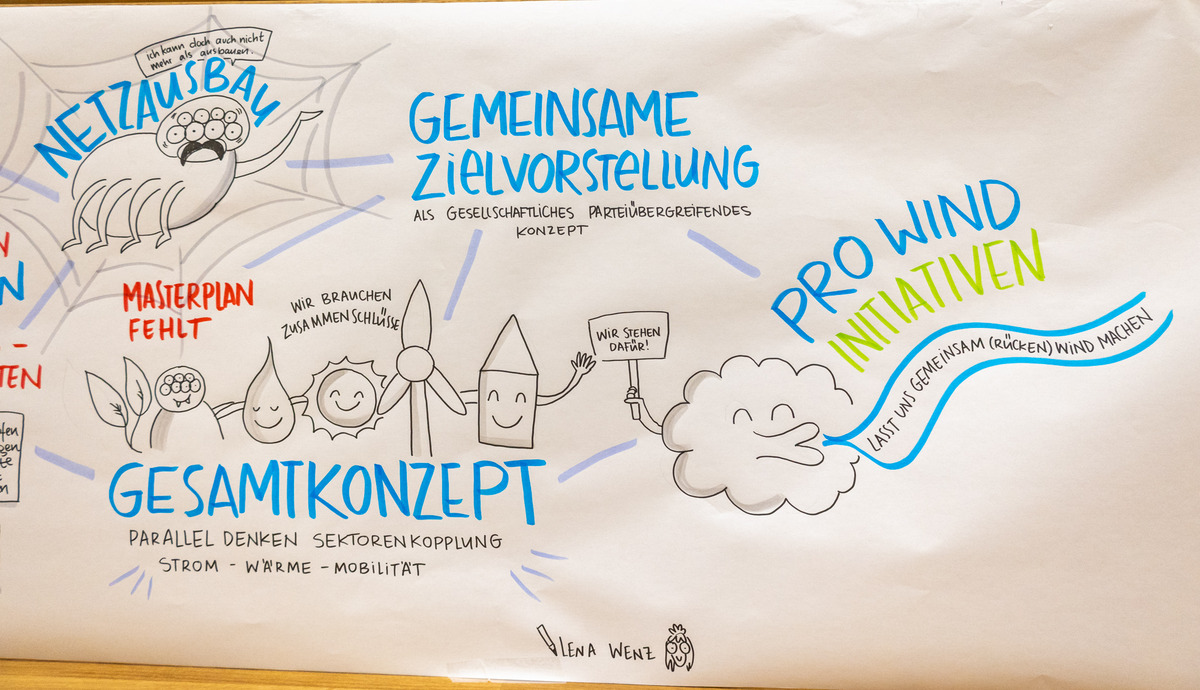 Ich kann doch auch nicht
mehr als ausbauen.
NETZAUSBAU
GEMEINSAME
ZIELVORSTELLUNG
ALS GESELLSCHAFTLICHES PARTEIÜBERGREIFENDES
KONZEPT
PRO WIND
INITIATIVEN
LASST UNS GEMEINSAM (RÜCKEN) WIND MACHEN
MASTERPLAN
FEHLT
WIR BRAUCHEN
ZUSAMMENSCHLÜSSE
WIR STEHEN
DAFÜR!
GESAMTKONZEPT
PARALLEL DENKEN SEKTORENKOPPLUNG
STROM - WÄRME - MOBILITÄT
LENA WENZ